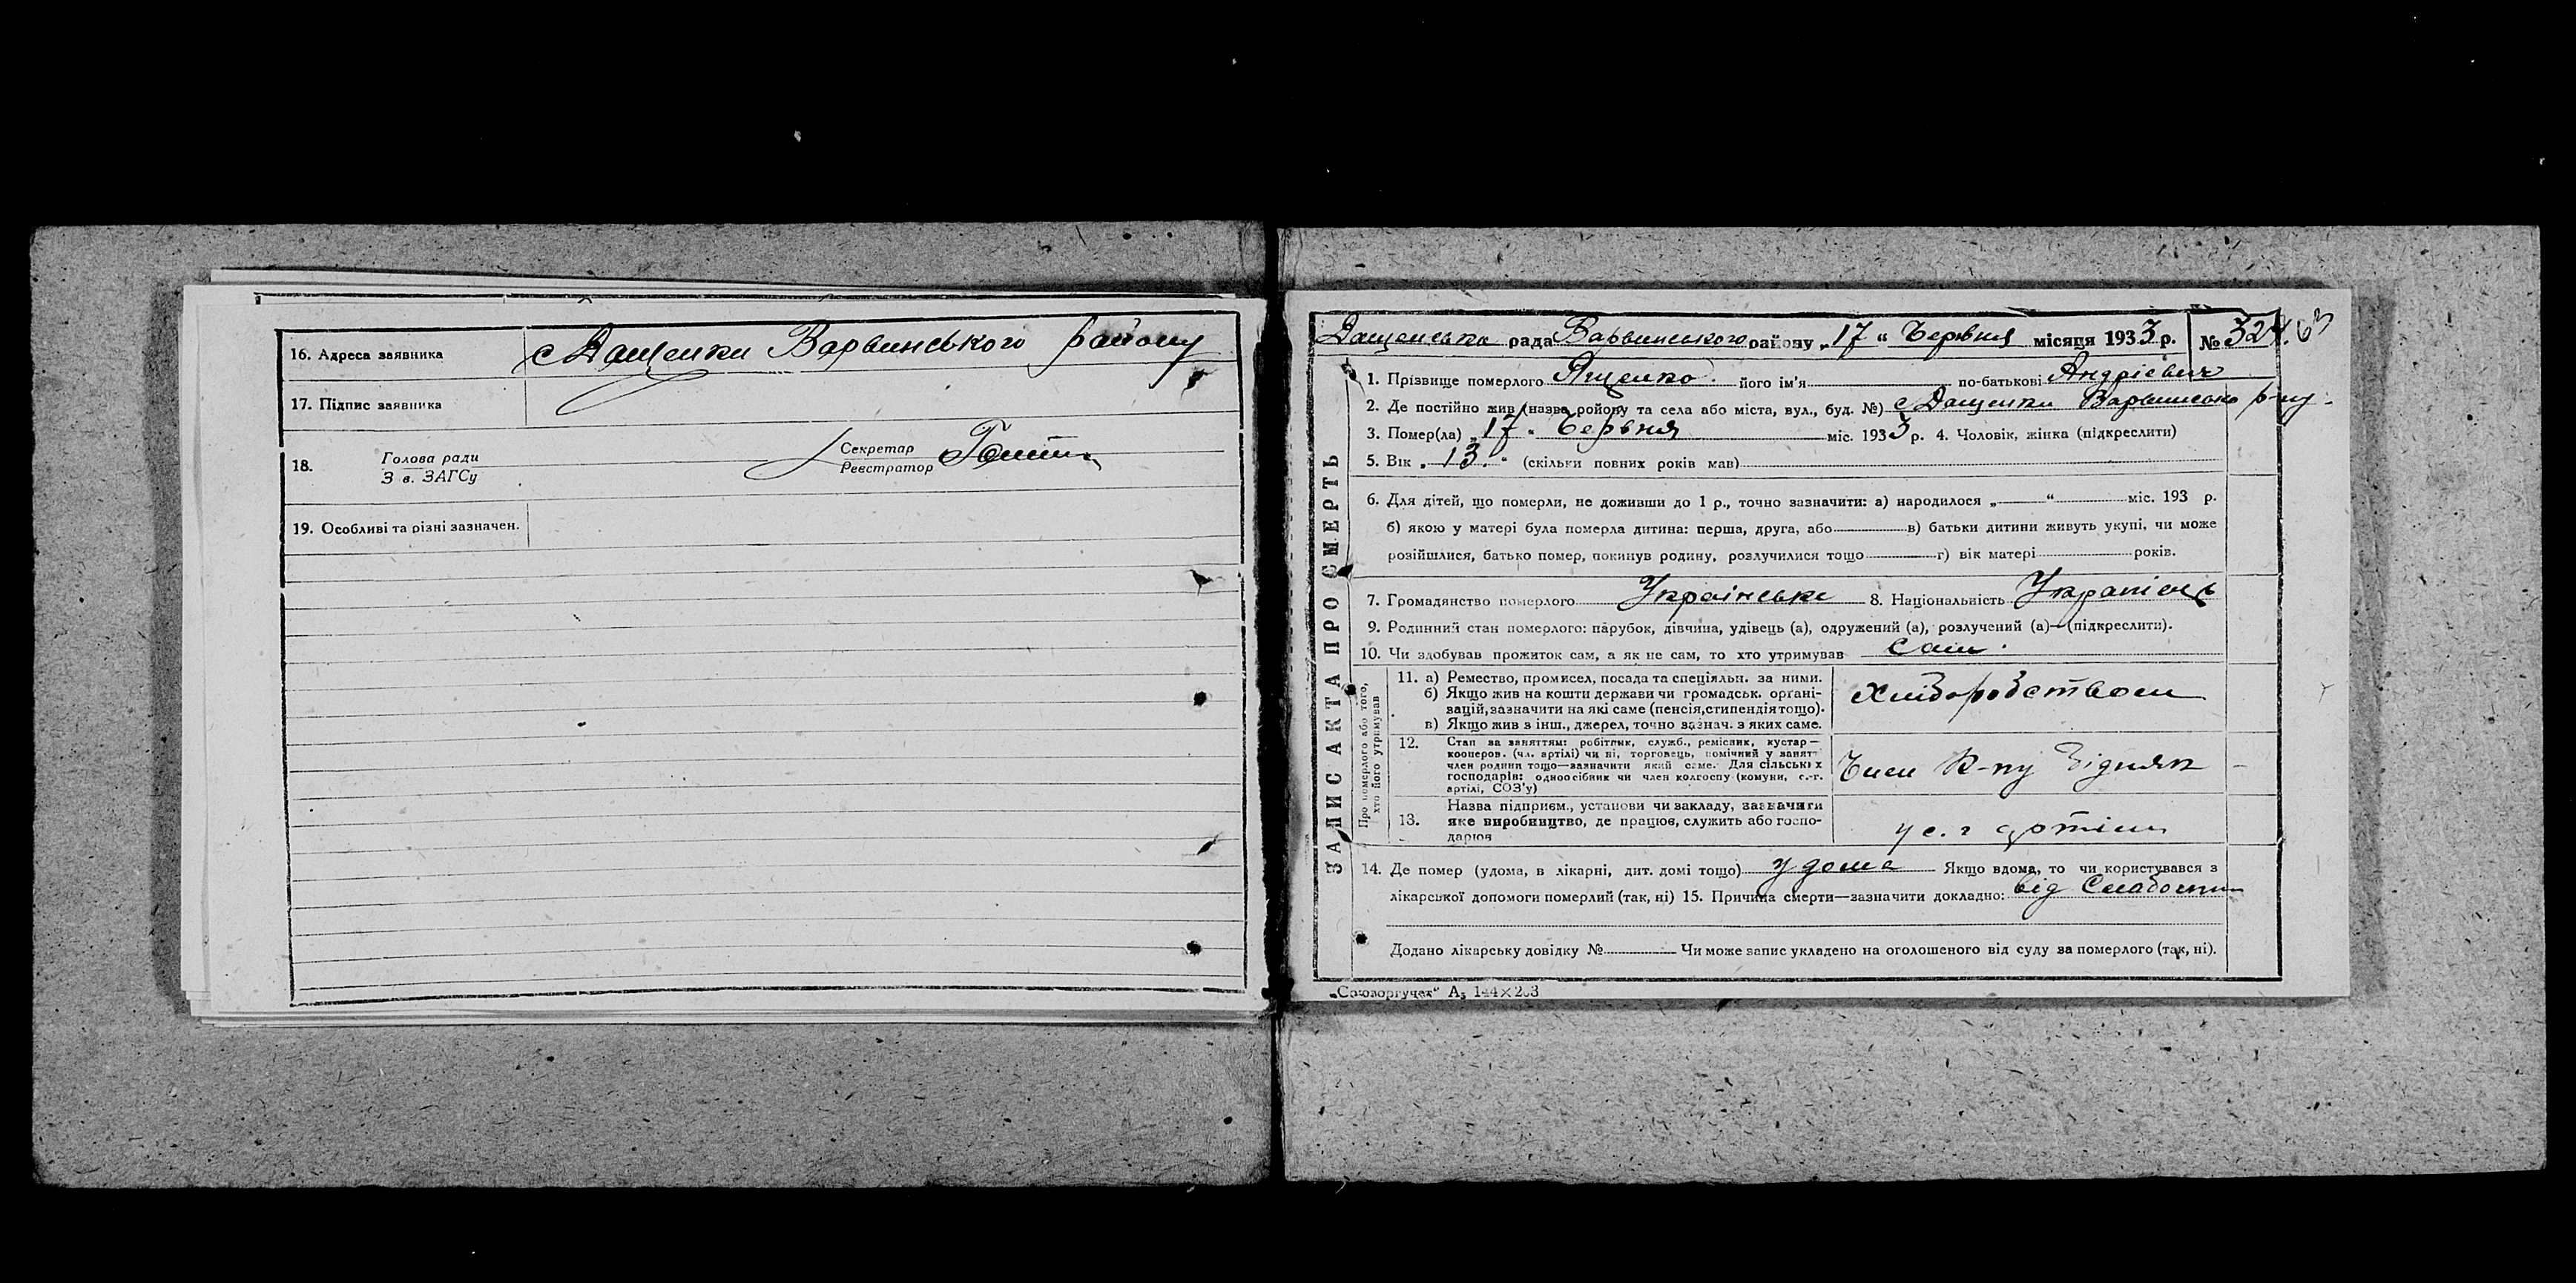 16. Адреса заявника с Дащенки Варвинського району
17. Підпис заявника
18. Голова ради Секретар
З в. ЗАГСу Реєстратор
19. Особливі та різні зазначен.
ЗАПИС АКТА ПРО СМЕРТЬ
Дащенська рада Варвинського району „17“ Червня місяця 1933 р. № 324. 63
1. Прізвище померлого Ященко. його ім'я по-батькові Андрієвич
2. Де постійно жив (назва ройону та села або міста, вул., буд. №) с Дащенки Варвинсько р-ну
3. Помер(ла) „17“ Червня міс. 1933 р. 4. Чоловік, жінка (підкреслити)
5. Вік „13.“ (скільки повних років мав)
6. Для дітей, що померли, не доживши до 1 р., точно зазначити: а) народилося „ “ міс. 193 р.
б) якою у матері була померла дитина: перша, друга, або в) батьки дитини живуть укупі, чи може
розійшлися, батько помер, покинув родину, розлучилися тощо г) вік матері років.
7. Громадянство померлого Українське 8. Національність Украпієць
9. Родинний стан померлого: парубок, дівчина, удівець (а), одружений (а), розлучений (а)—(підкреслити).
10. Чи здобував прожиток сам, а як не сам, то хто утримував Сам.
Про померлого або того, хто його утримував
11. а) Ремество, промисел, посада та спеціяльн. за ними.
б) Якщо жив на кошти держави чи громадськ. орґані-
зацій, зазначити на які саме (пенсія, стипендія тощо).
в) Якщо жив з інш., джерел, точно зазнач. з яких саме.
хліборобством
12. Стан за заняттям: робітник, служб., ремісник, кустар—
кооперов. (чл. артілі) чи ні, торговець, помічний у занят
член родини тощо—зазначити який саме. Для сільських
господарів: одноосібник чи член колгоспу (комуни, с.-г.
артілі, СОЗ'у)
Член К-пу Бідняк
13. Назва підприєм., установи чи закладу, зазначити
яке виробництво, де працює, служить або госпо-
дарює
у с. г артілі
14. Де помер (удома, в лікарні, дит. домі тощо) у дома Якщо вдома, то чи користувався з
лікарської допомоги померлий (так, ні) 15. Причина смерти—зазначити докладно: від Слабости
Додано лікарську довідку № Чи може запис укладено на оголошеного від суду за померлого (так, ні).
„Союзоргучет“ А₅ 144×203